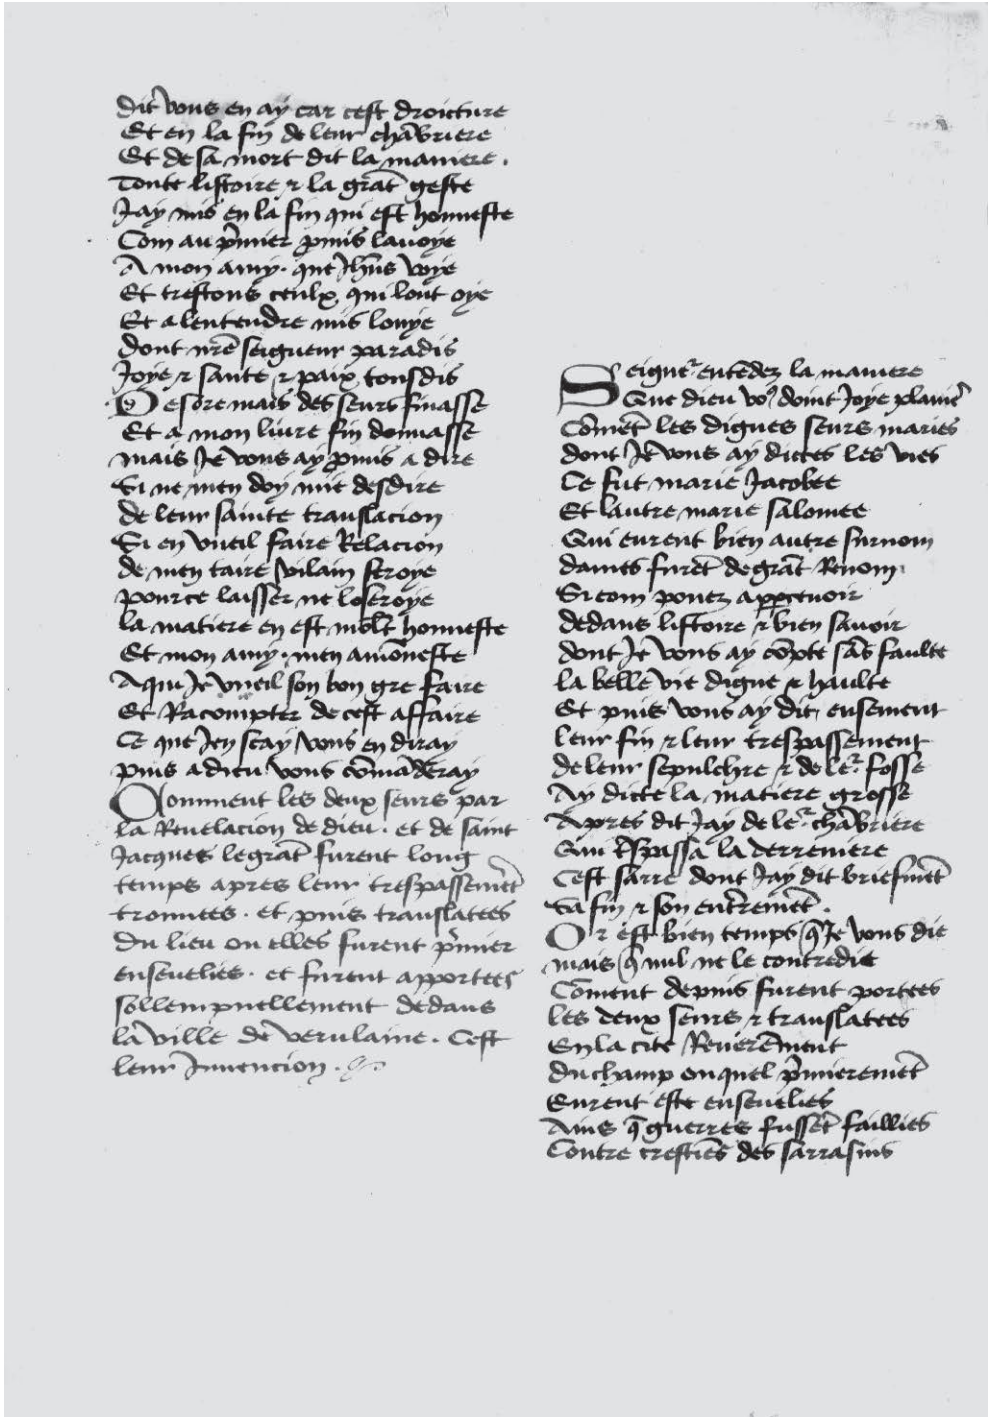 dit vous en ay car cest droicture
Et en la fin de leur chābriere
Et de sa mort dit la maniere.
Toute listoire & la grāt geste
Jay mis en la fin qui est honneste
Com au p̄mier pmis lavoye
A mon amy. que Jhūs voye
Et trestous ceulx qui lont oye
Et a lentendre mis louye
dont nrē seigneur paradis
Joye & sante & paix tousdis
Desoremais des seurs finasse
Et a mon livre fin donnasse
mais Je vous ay pmis a dire
Si ne men doy mie desdire
de leur sainte translacion
Si en vueil faire Relacion
de men taire vilain seroye
pource laisser ne loseroye
la matiere en est mōlt honneste
Et mon amy. men amōneste
A qui Je vueil son bon gre faire
Et Racompter de cest affaire
Ce que Jen scay vous en diray
puis a dieu vous cōmāderay
Comment les deux seurs par
la Revelacion de dieu. et de saint
Jacques legrāt furent long
temps apres leur trespassemēt
trouvees. et puis translatees
Du lieu ou elles furent p̄mier
ensevelies. et furent apportees
sollempnellement dedans
la ville de verulaine. Cest
leur Invencion.
Seignēr entēdez la maniere
Que dieu vo9 doint Joye planiē
Cōmēt les dignes seurs maries
dont Je vous ay dictes les vies
Ce fut marie Jacobee
Et lautre marie salomee
Qui eurent bien autre surnom
dames furēt de grāt Renom.
Si com pouez appcevoir
dedans listoire & bien savoir
dont Je vous ay cōpte sās faulte
la belle vie digne & haulte
Et puis vous ay dit ensement
leur fin & leur trespassement
de leur sepulchre & de leʳ fosse
Ay dicte la matiere grosse
Apres dit Jay de leʳ chābriere
Qui t̄spassa la derreniere
Cest sarre dont Jay dit briefmēt
Sa fin & son ent̄remēt.
Or est bien temps q̄ Je vous die
mais q̄ nul ne le contredie
Cōment depuis furent portees
les deux seurs & translatees
En la cite Reverēment
Du champ ou quel p̄mieremēt
Eurent este ensevelies
Ains q̄ guerres fussēt faillies
Contre crestiēs des sarrasins